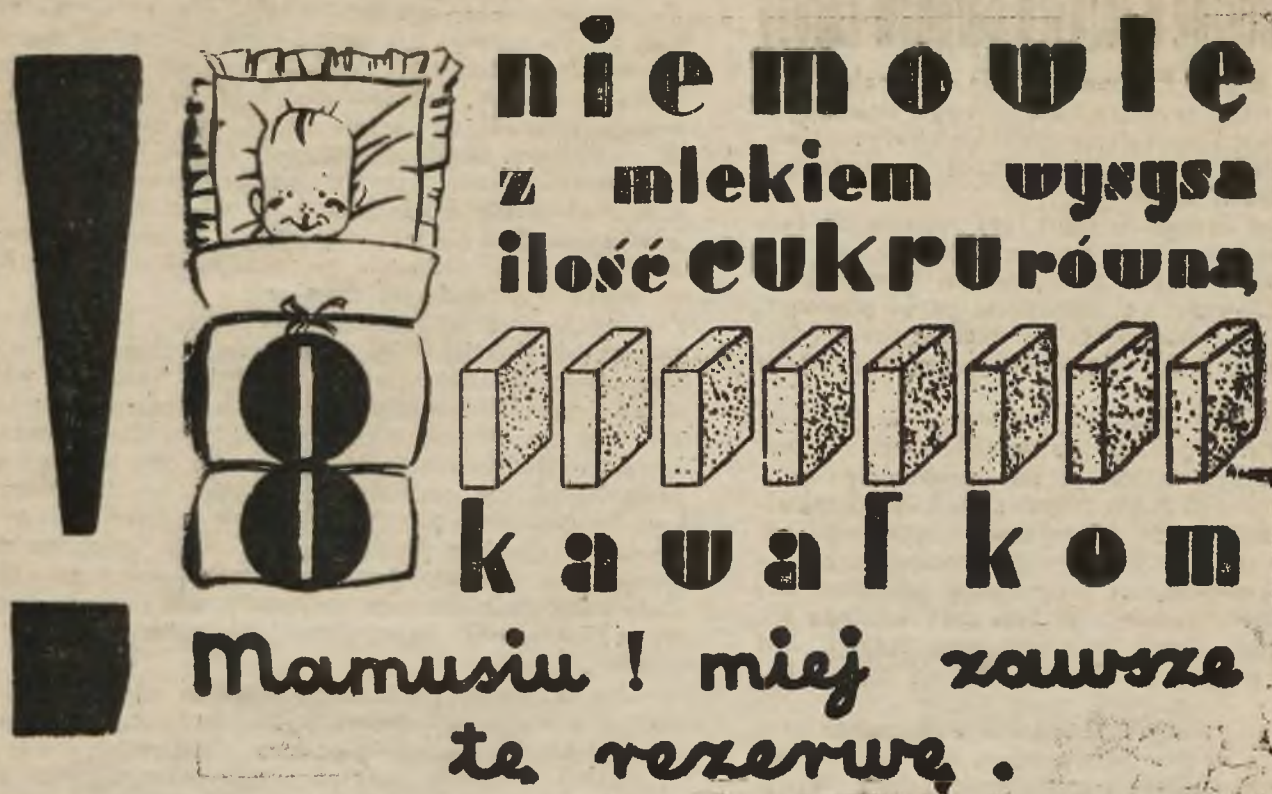 !
8
niemowlę
z mlekiem wysysa
ilość cukru równą
kawałkom
Mamusiu! miej zawsze
tę rezerwę.